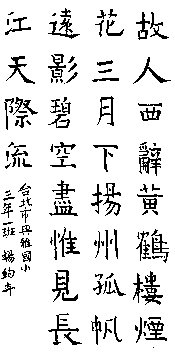 故人西辭黃鶴樓煙
花三月下揚州孤帆
遠影碧空盡惟見長
江天際流
台北市興雅國小
三年一班 楊鈞弁